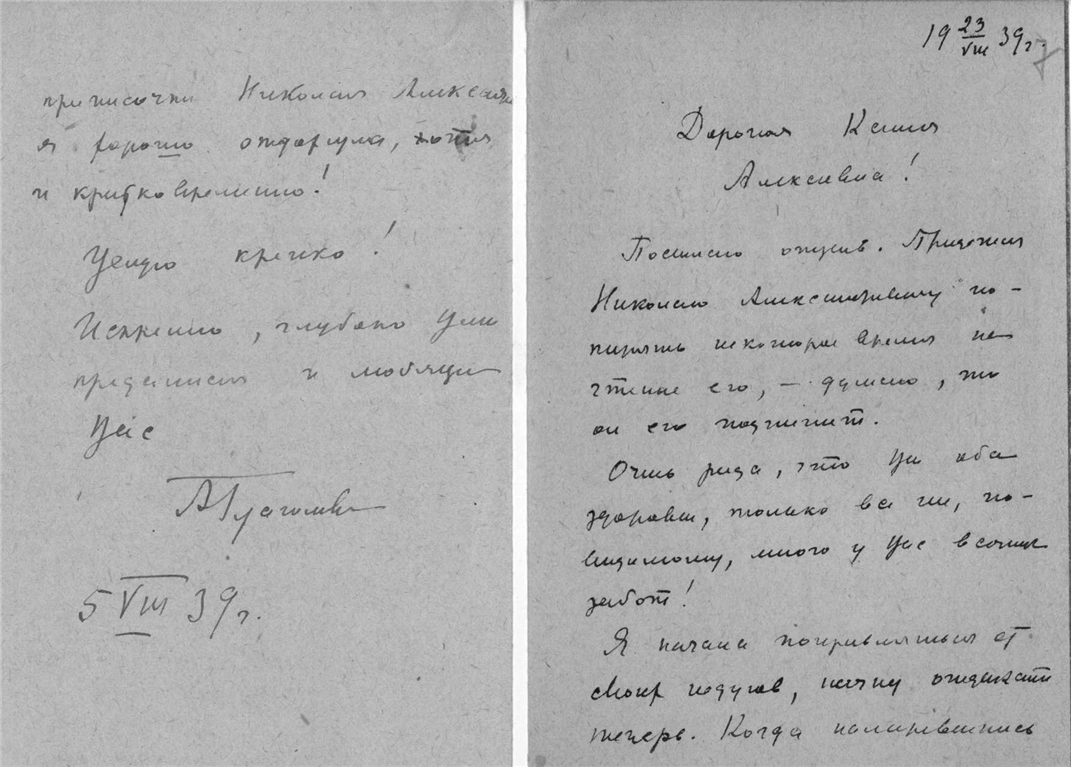 приписочки Николая Алексан
я хорошо отдохнула, хотя
и кратковременно!
Целую крепко!
Искренно, глубоко Вам
преданная и любящая
Вас
АГлаголева
5 VIII 39 г.
19 23/VIII 39 г.
7
Дорогая Ксения
Алексеевна!
Посылаю отзыв. Придется
Николаю Александровичу по-
терять некоторое время на
чтение его, – думаю, что
он его подпишет.
Очень рада, что Вы оба
здоровы, только вот, по-
видимому, много у Вас всяких
забот!
Я начала поправляться от
своих недугов, начну отдыхать
теперь. Когда